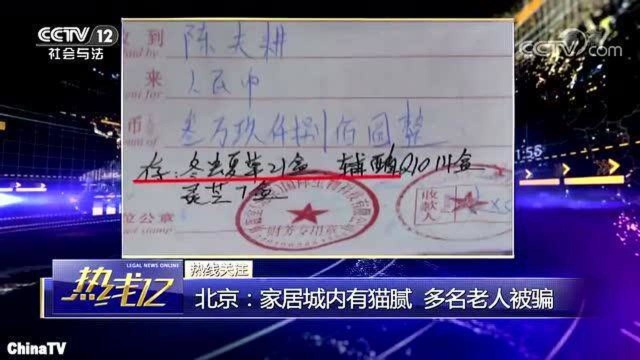 CCTV 12
社会与法
CCTV.com
收到
陈夫耕
paid by
来
人民币
ment for
币
叁万玖仟捌佰圆整
amount of
存:冬虫夏草21盒 辅酶Q10 14盒
灵芝7盒
财务专用章
收款人
位公章
:56
LEGAL NEWS ONLINE
热线12
热线关注
北京:家居城内有猫腻 多名老人被骗
ChinaTV